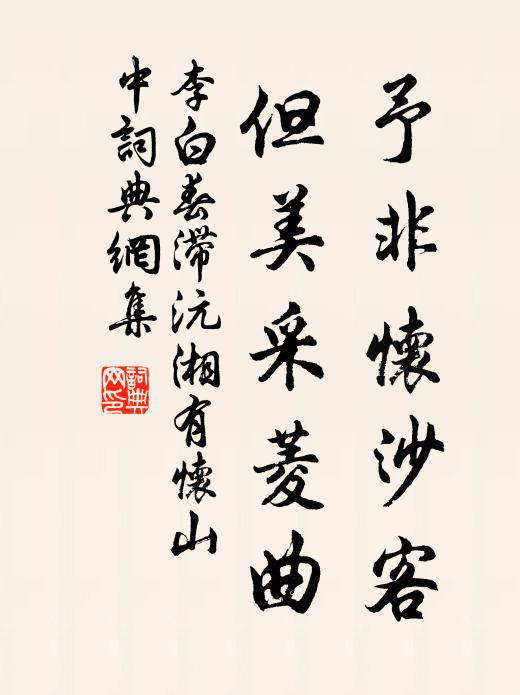 予非懷沙客
但美采菱曲
李白春滯沅湘有懷山
中詞典網集
詞典
网印